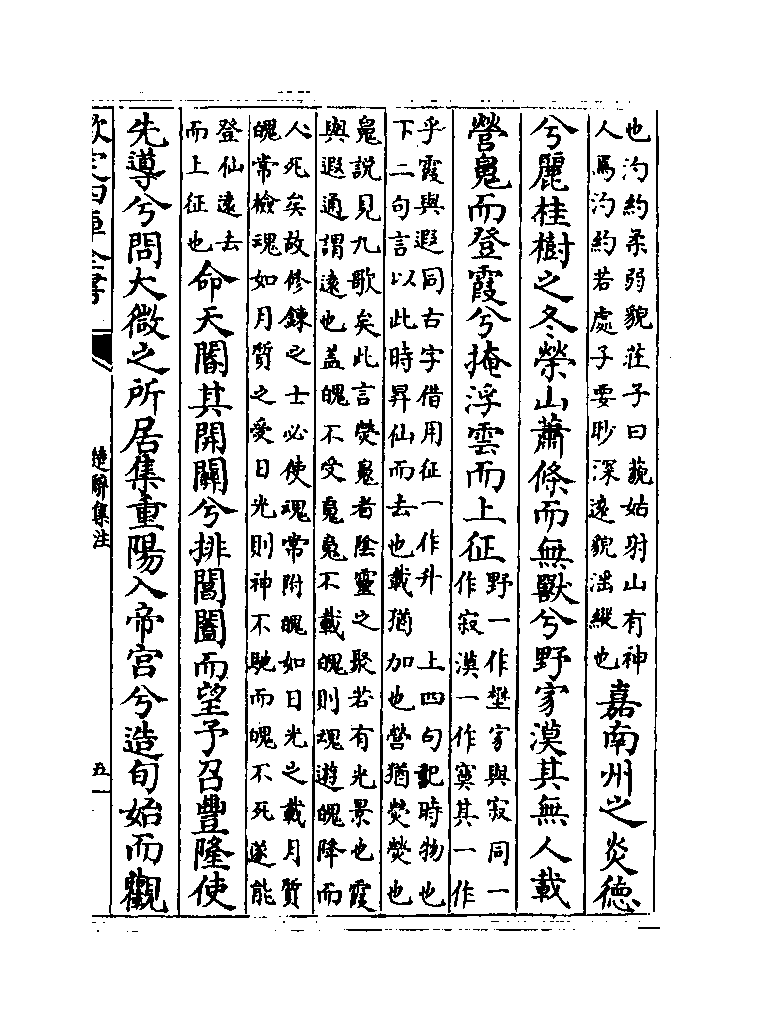 也汋約柔弱貌莊子曰藐姑射山有神
人焉汋約若處子要眇深遠貌淫縱也
嘉南州之炎德
兮麗桂樹之冬榮山蕭條而無獸兮野㝛漠其無人載
營䰟而登霞兮掩浮雲而上征
野一作壄㝛與寂同一
作寂漠一作寞其一作
乎霞與遐同古字借用征一作升 上四句記時物也
下二句言以此時昇仙而去也載猶加也營猶熒熒也
䰟說見九歌矣此言熒䰟者陰靈之聚若有光景也霞
與遐通謂遠也蓋魄不受䰟䰟不載魄則魂遊魄降而
人死矣故修鍊之士必使魂常附魄如日光之載月質
魄常檢魂如月質之受日光則神不馳而魄不死遂能
登仙遠去
而上征也
命天閽其開關兮排閶闔而望予召豐隆使
先導兮問大微之所居集重陽入帝宮兮造旬始而觀
欽定四庫全書
楚辭集注
五